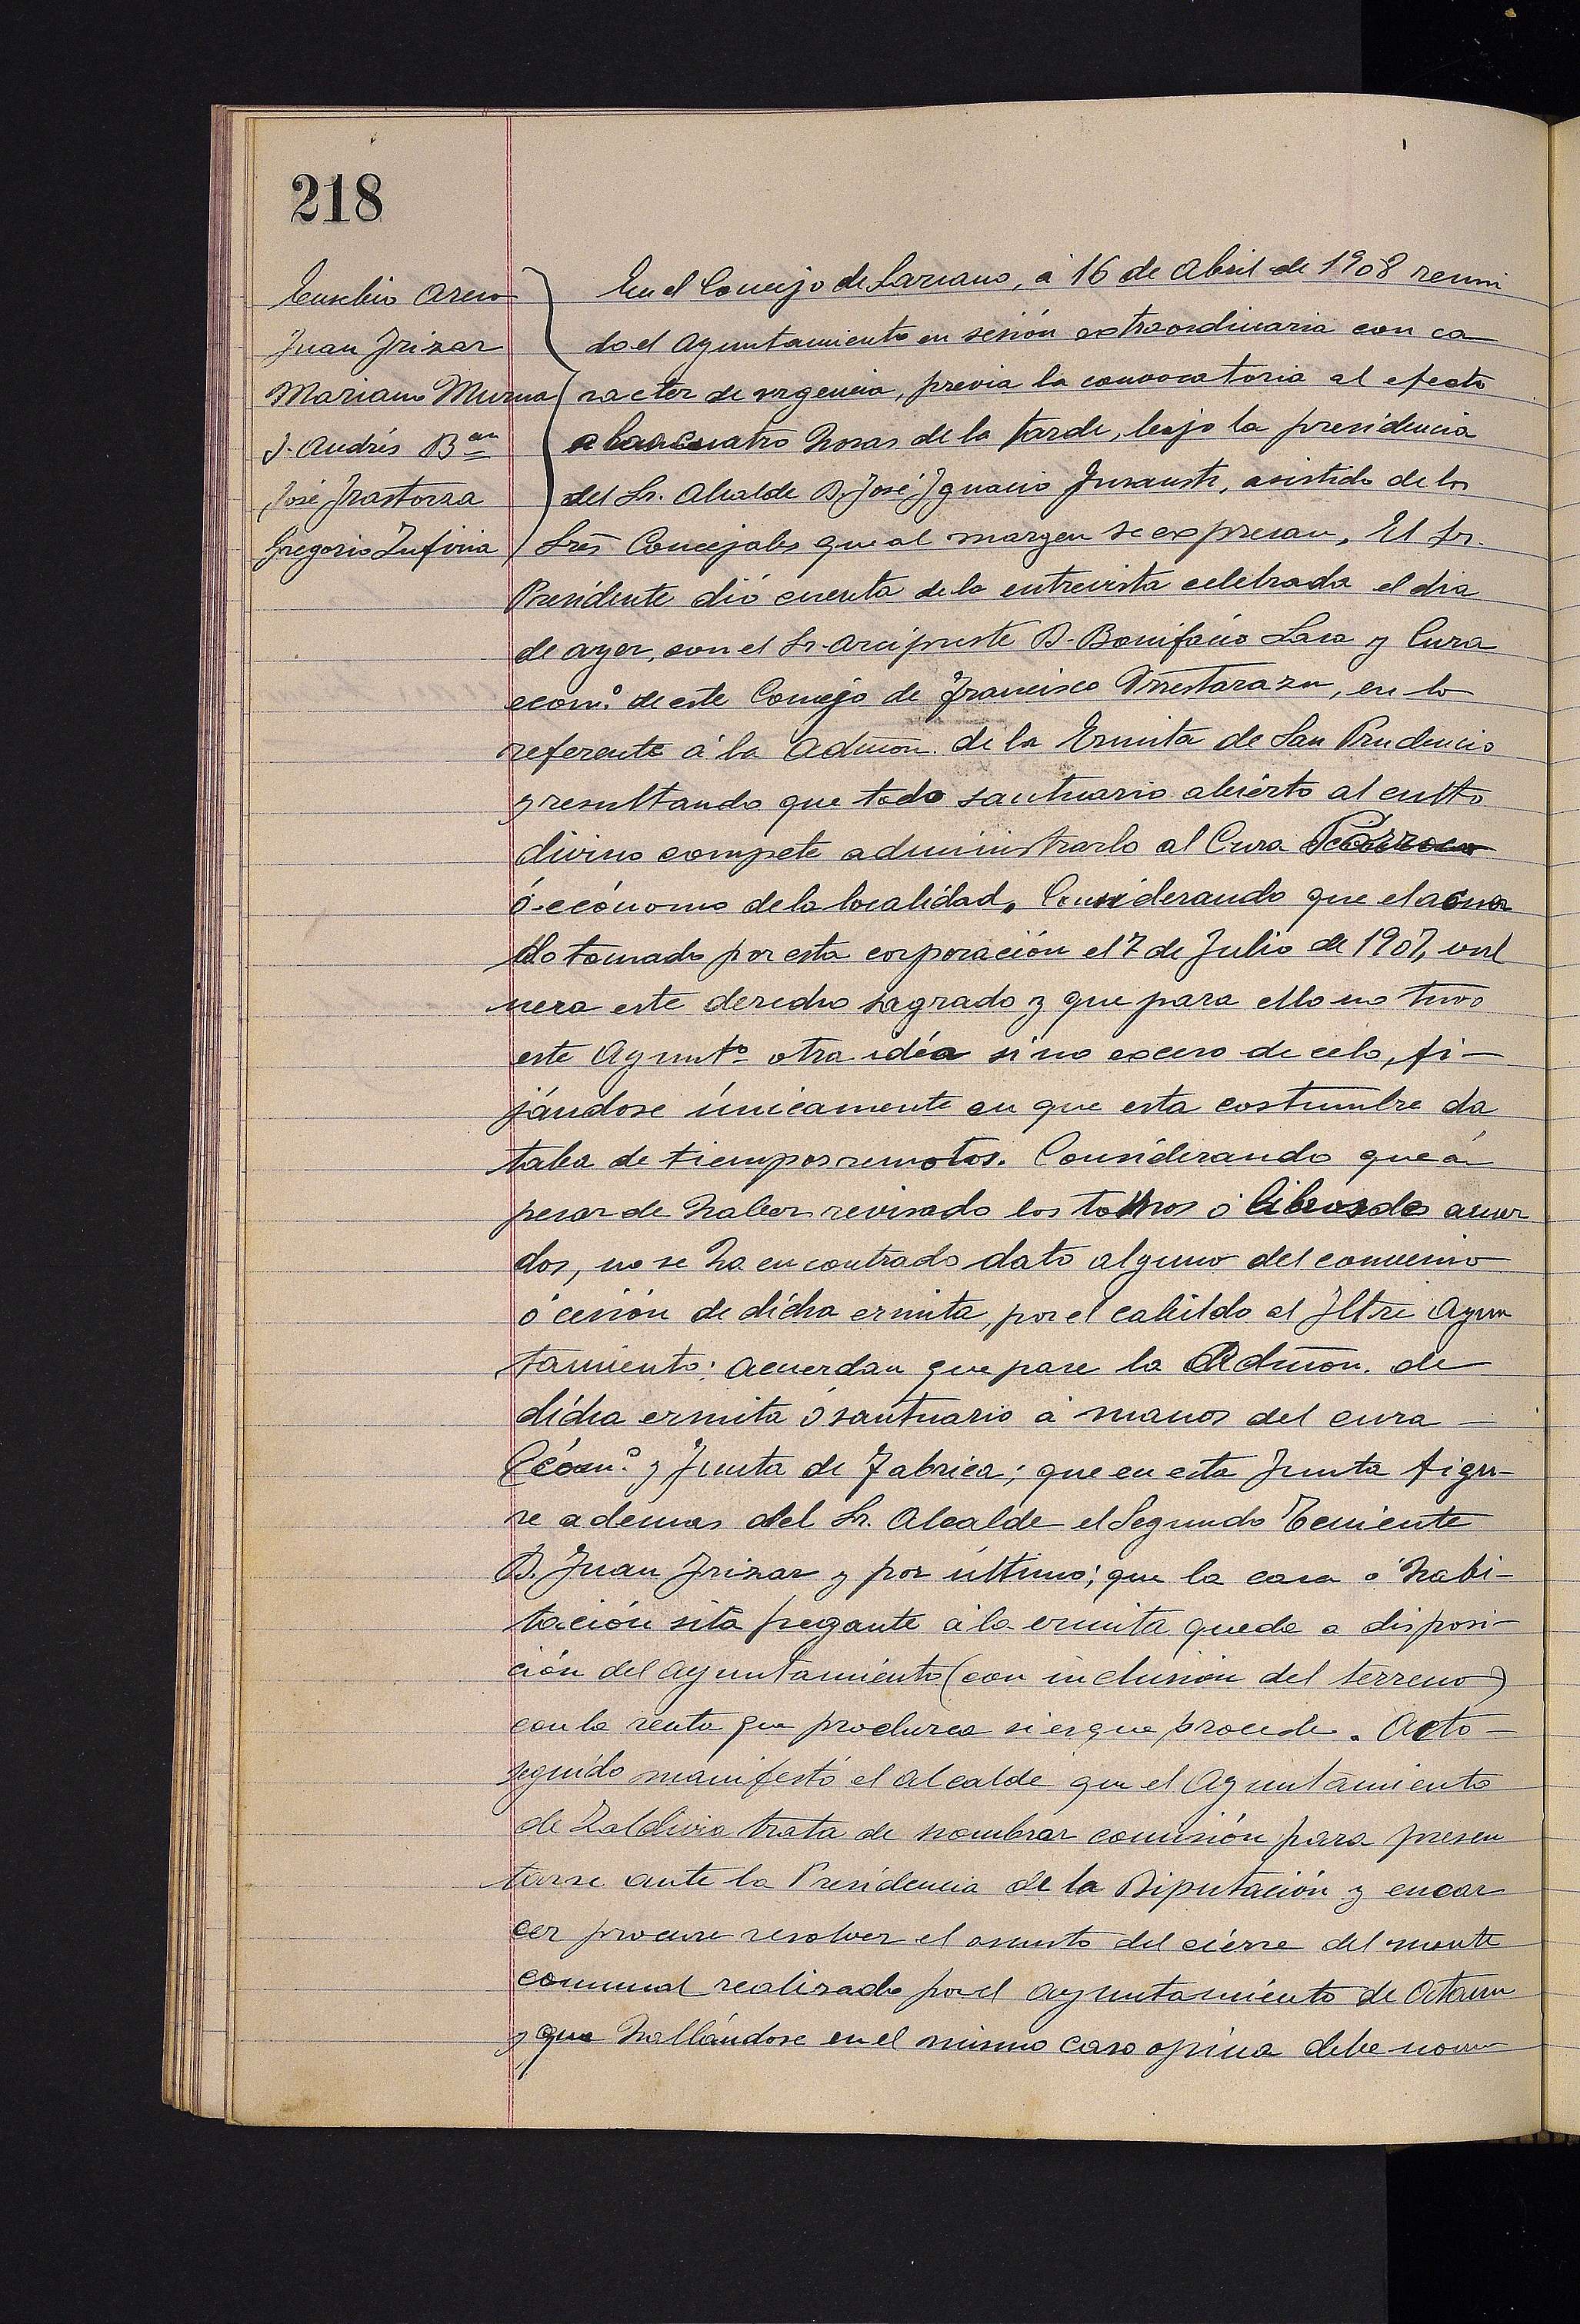 218
Eusebio Areso
Juan Irizar
Mariano Murua
J. Andrés B.an
José Irastorza
Gregorio Zufiria
En el Concejo de Lazcano, á 16 de Abril de 1908 reuni
do el Ayuntamiento en sesión extraordinaria con ca
racter de urgencia, previa la convocatoria al efecto
a las cuatro horas de la tarde, bajo la presidencia
del Sr. Alcalde D. José Ignacio, asistido de los
Sres Concejales que al margen se expresan, El Sr.
Presidente dió cuenta de la entrevista celebrada el dia
de ayer, con el Sr. Arcipreste D. Bonifacio Lasa y Cura
econ.º de este Concejo de Francisco Urrestarazu, en lo
referente á la Admon. de la Ermita de San Prudencio
y resultando que todo santuario abierto al culto
divino compete administrarlo al Cura Párroco
ó ecónomo de la localidad, Considerando que el acuer
do tomado por esta corporación el 7 de Julio de 1907, vul
nera este derecho sagrado y que para ello no tuvo
este Ayunt.º otra idéa sino exceso de celo, fi-
jándose únicamente en que esta costumbre da
taba de tiempos remotos. Considerando que á
pesar de haber revisado los tomos ó libros de acuer
dos, no se ha encontrado dato alguno del convenio
ó cesión de dicha ermita, por el cabildo al Iltre Ayun
tamiento: acuerdan que pase la Admon. de
dicha ermita ó santuario á manos del cura -
Ecóm.º y Junta de Fabrica; que en esta Junta figu-
re ademas del Sr. Alcalde el Segundo Teniente
D. Juan Irizar y por último; que la casa ó habi-
tación sita pegante á la ermita quede a disposi-
ción del Ayuntamiento (con inclusión del terreno)
con la renta que produzca si es que procede. Acto -
seguido manifestó el alcalde que el Ayuntamiento
de Zaldivia trata de nombrar comisión para presen
tarse ante la Presidencia de la Diputación y encar
cer procure resolver el asunto del cierre del monte
comunal realizado por el Ayuntamiento de Ataun
y que hallándose en el mismo caso opina debe nom